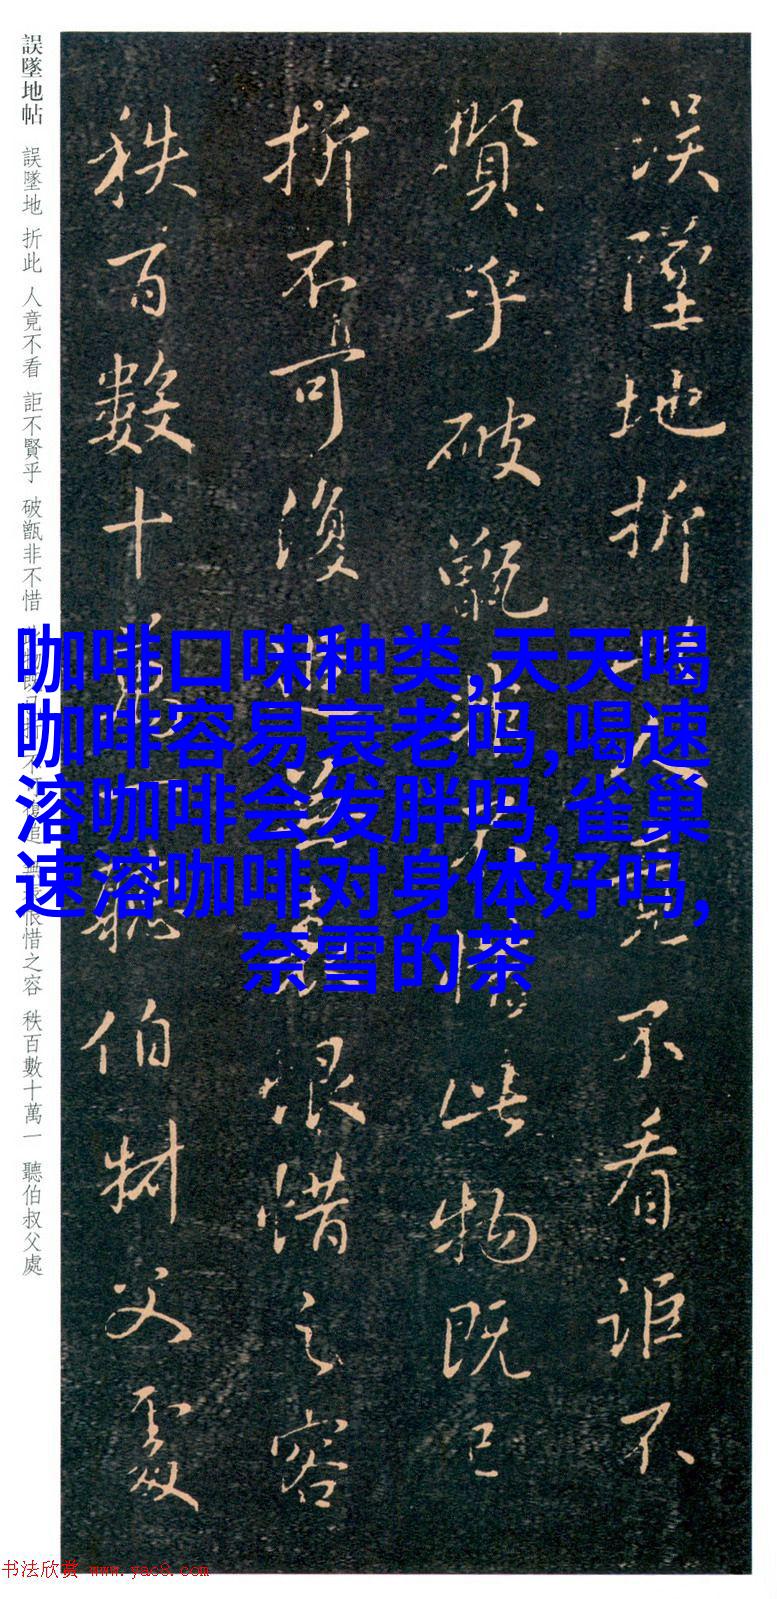 誤墜地折此人竟不看詎不
賢乎破甑非不惜此物既已
折不可復追無恨惜之容
秩百數十萬一聽伯叔父處
誤墜地帖 誤墜地 折此 人竟不看 詎不賢乎 破甑非不惜 此物既已折 不可復追 恨惜之容 秩百數十萬一 聽伯叔父處
咖啡口味种类,天天喝
咖啡容易衰老吗,喝速
溶咖啡会发胖吗,雀巢
速溶咖啡对身体好吗,
奈雪的茶
书法欣赏 www.yac8.com